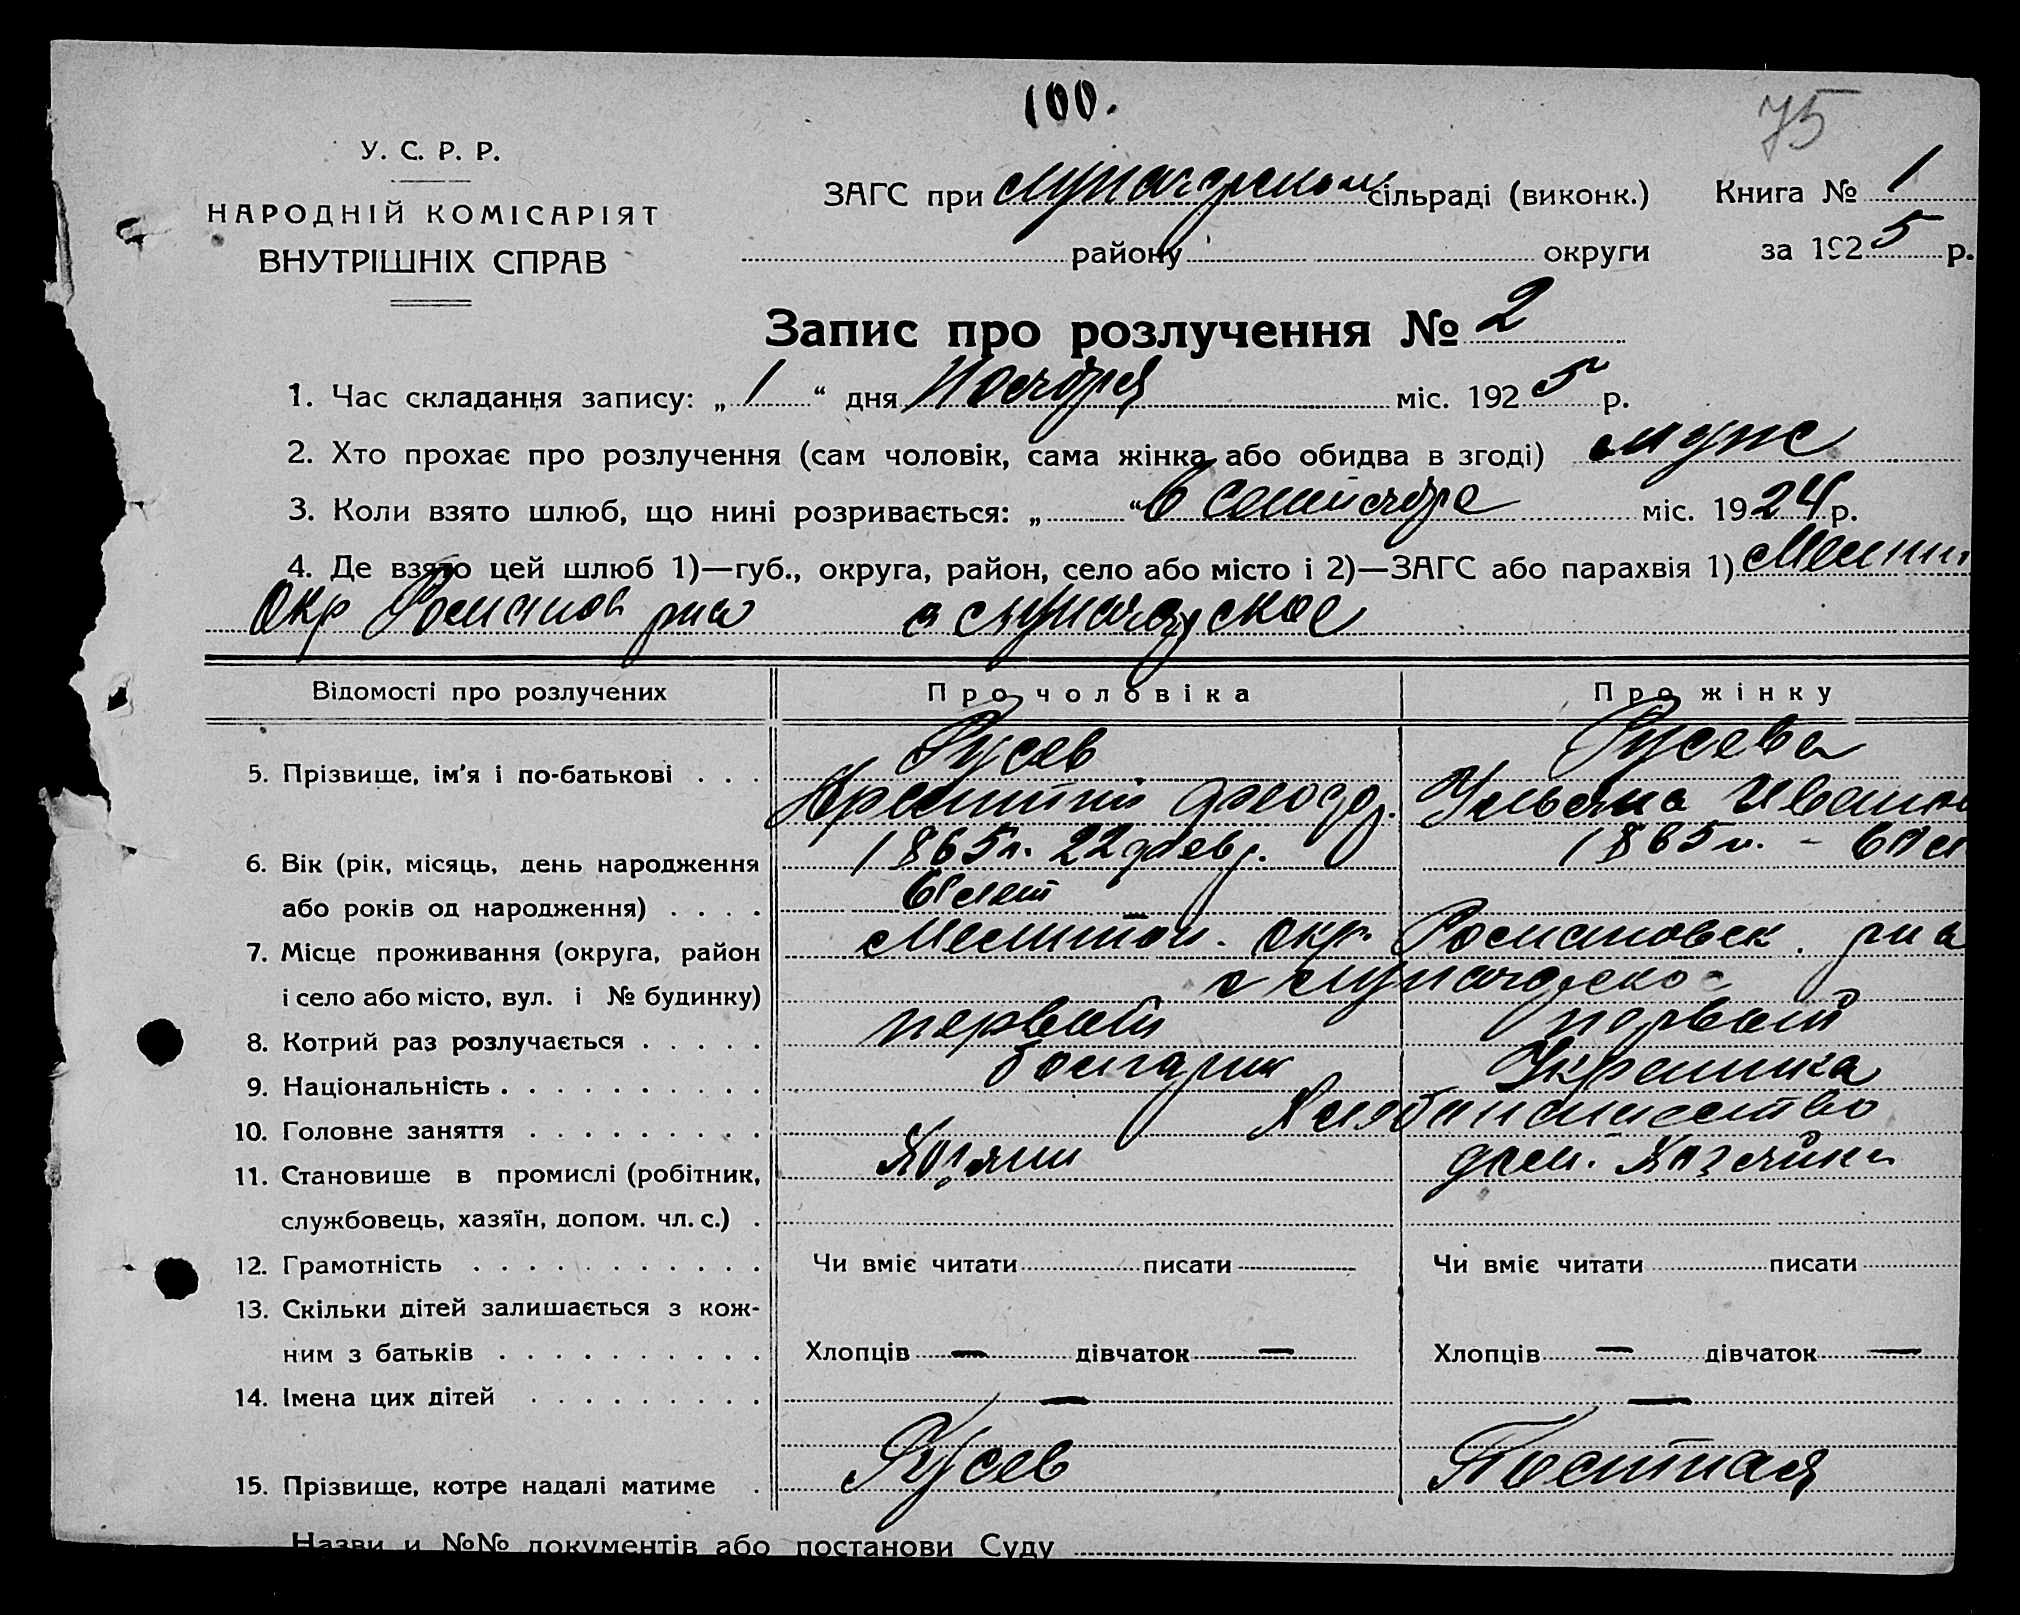 100.
75
У. С. Р. Р.
НАРОДНІЙ КОМІСАРІЯТ
ВНУТРІШНІХ СПРАВ
ЗАГС при сільраді (виконк.) Книга № 1
району округи за 1925 р.
Запис про розлучення № 2
1. Час складання запису: „ 1 “ дня Ноября міс. 1925 р.
2. Хто прохає про розлучення (сам чоловік, сама жінка або обидва в згоді) муж
3. Коли взято шлюб, що нині розривається: „ “ В сентябре міс. 1924 р.
4. Де взято цей шлюб 1)—губ., округа, район, село або місто і 2)—ЗАГС або парахвія 1) Мелит
Окр Роман рна с
Відомості про розлучених Про чоловіка Про жінку
5. Прізвище, ім'я і по-батькові . . . Русев Русева
Феод. Ульяна Иванов
6. Вік (рік, місяць, день народження 1865 г. 22 февр. 1865 г. - 60 л
або років од народження) . . . . лет
7. Місце проживання (округа, район Мелитоп. окр. Романовск. рна
і село або місто, вул. і № будинку) с
8. Котрий раз розлучається . . . . . первый первый
9. Національність . . . . . . . . . болгарин Украинка
10. Головне заняття . . . . . . . . . Хлебопашество
11. Становище в промислі (робітник, Хозяин Хозяйки
службовець, хазяїн, допом. чл. с.) .
12. Грамотність . . . . . . . . . . . Чи вміє читати писати Чи вміє читати писати
13. Скільки дітей залишається з кож-
ним з батьків . . . . . . . . . . Хлопців — дівчаток — Хлопців — дівчаток —
14. Імена цих дітей . . . . . . . . . — —
15. Прізвище, котре надалі матиме . Русев Постная
Назви и №№ документів або постанови Суду